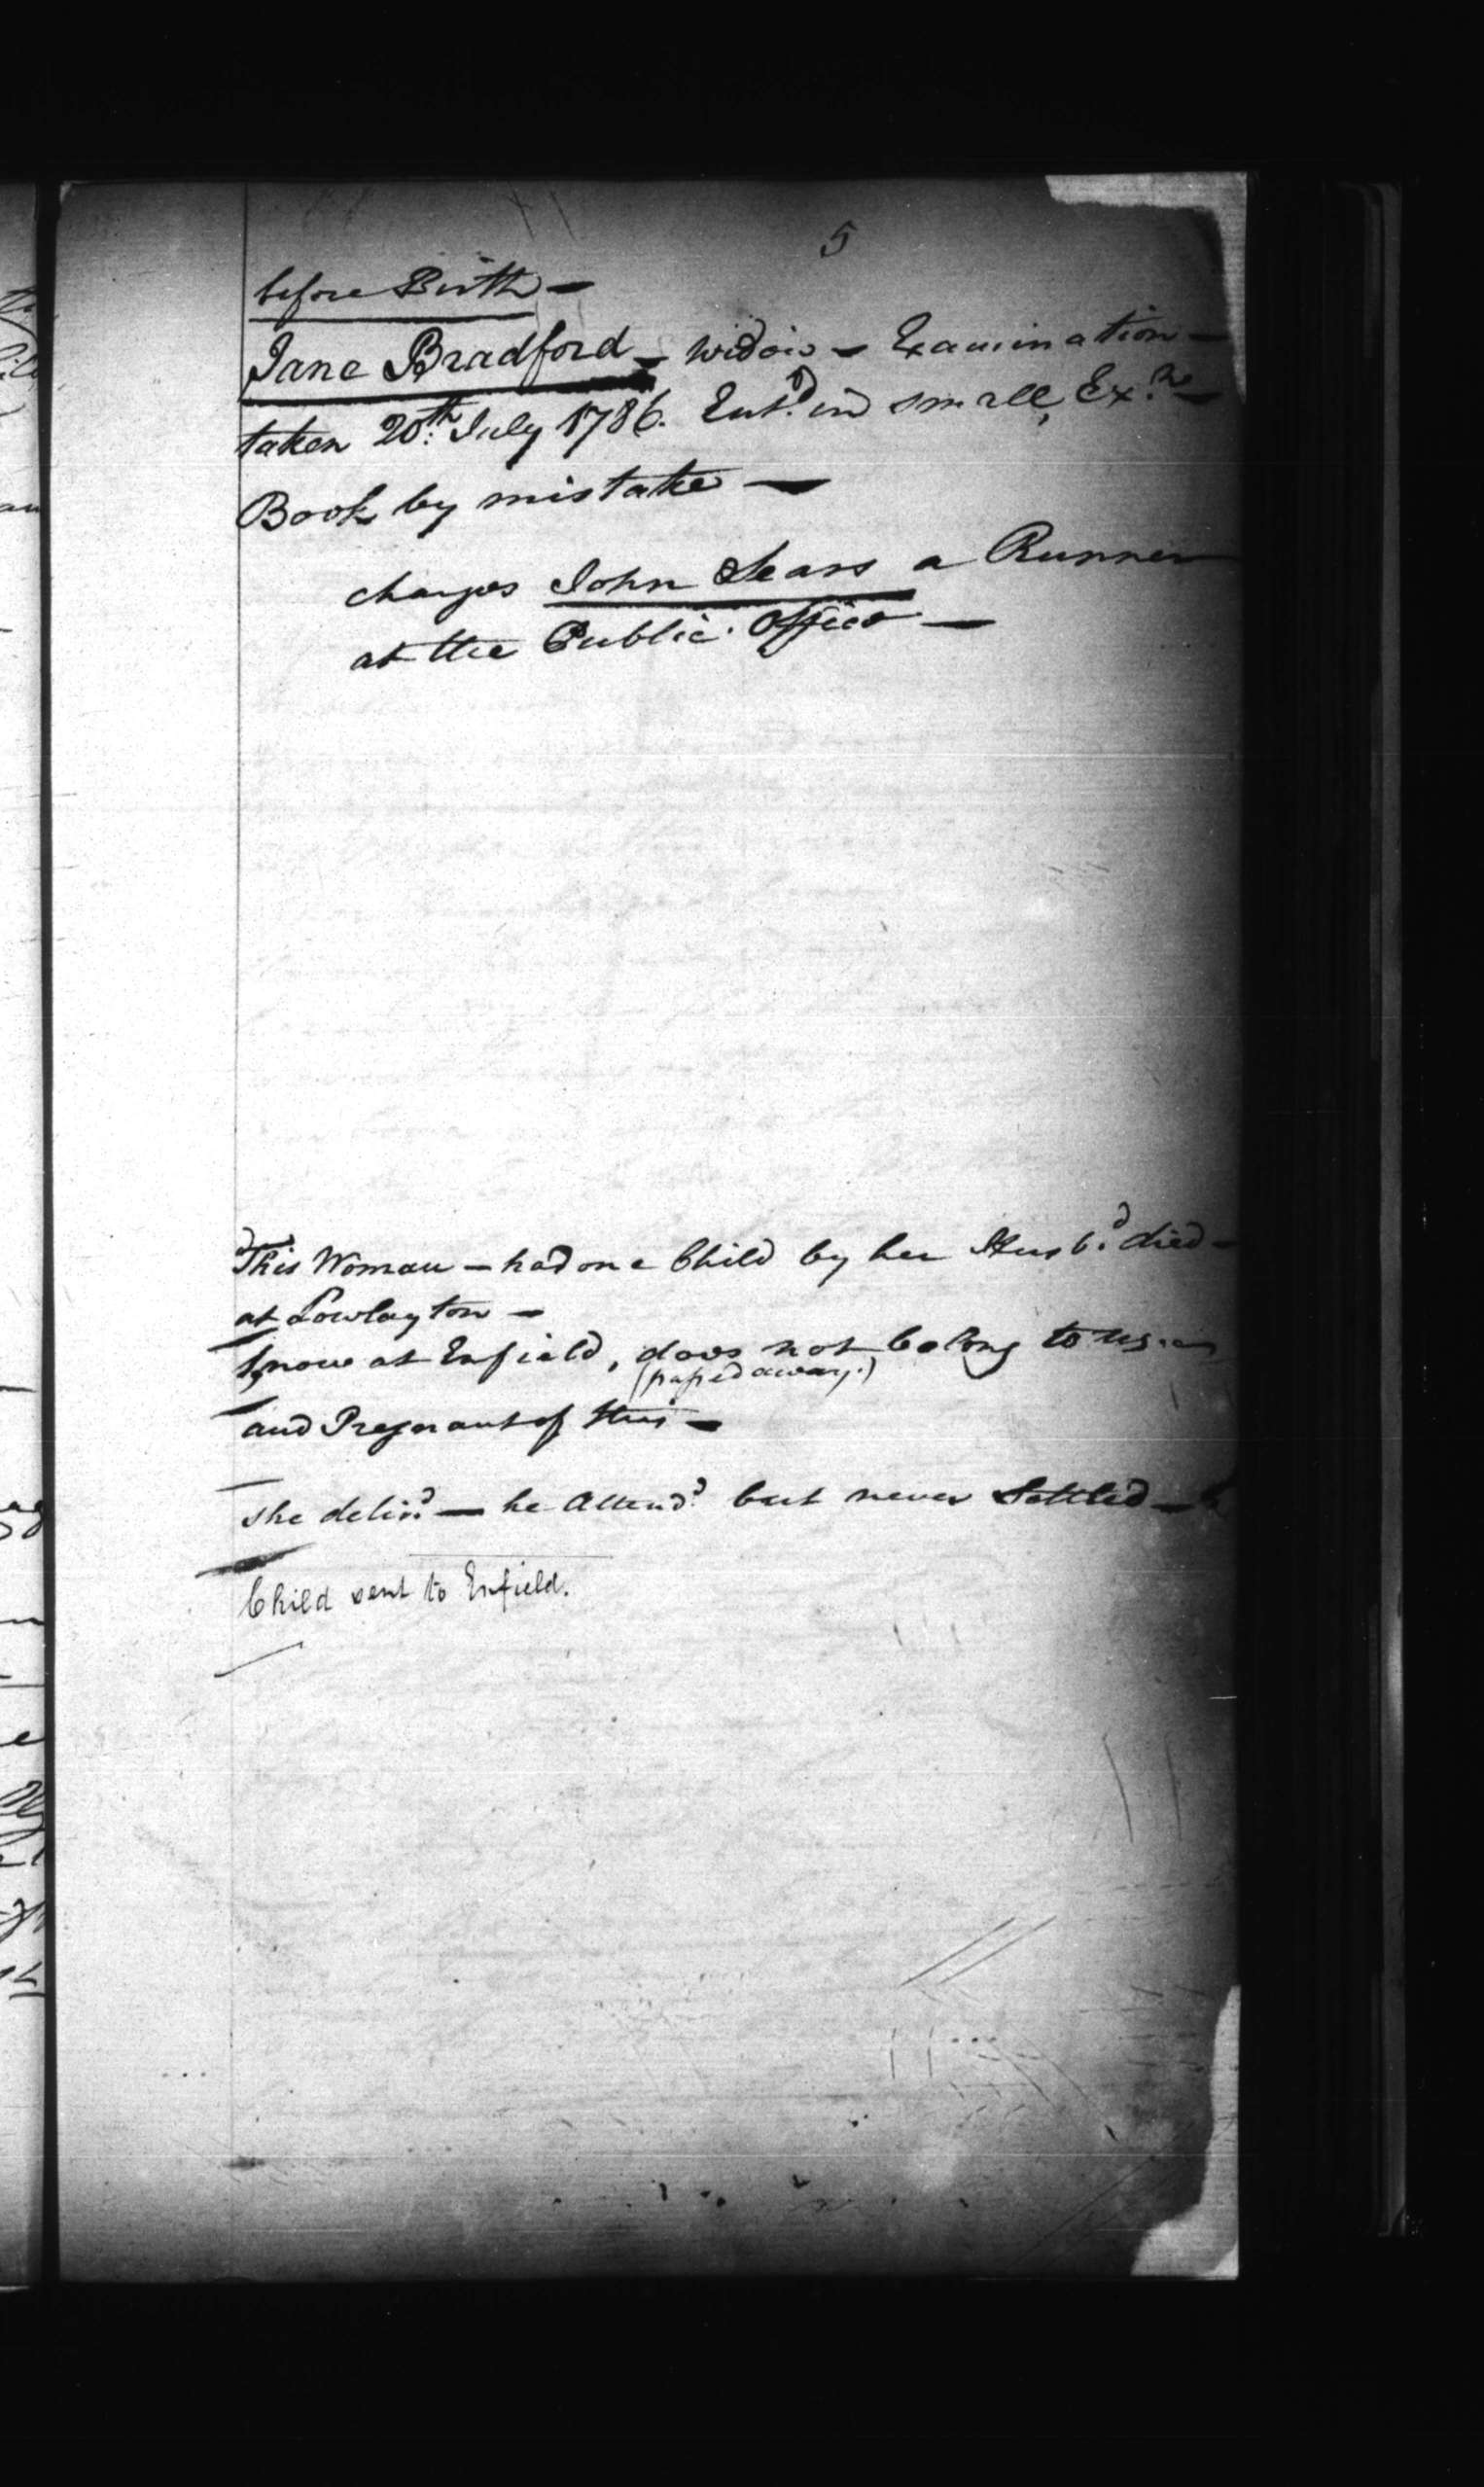 5
before Birth —
Jane Bradford — widow — Examination —
taken 20th July 1786. Entd in small Exn —
Book by mistake —
charges John Sears a Runner
at the Public Office —
This Woman — had one Child by her Husbd died —
at Lowlayton —
now at Enfield, does not belong to us
(passed away.)
and Pregnant of this —
she delivd — he Attendd but never Settled —
Child sent to Enfield.